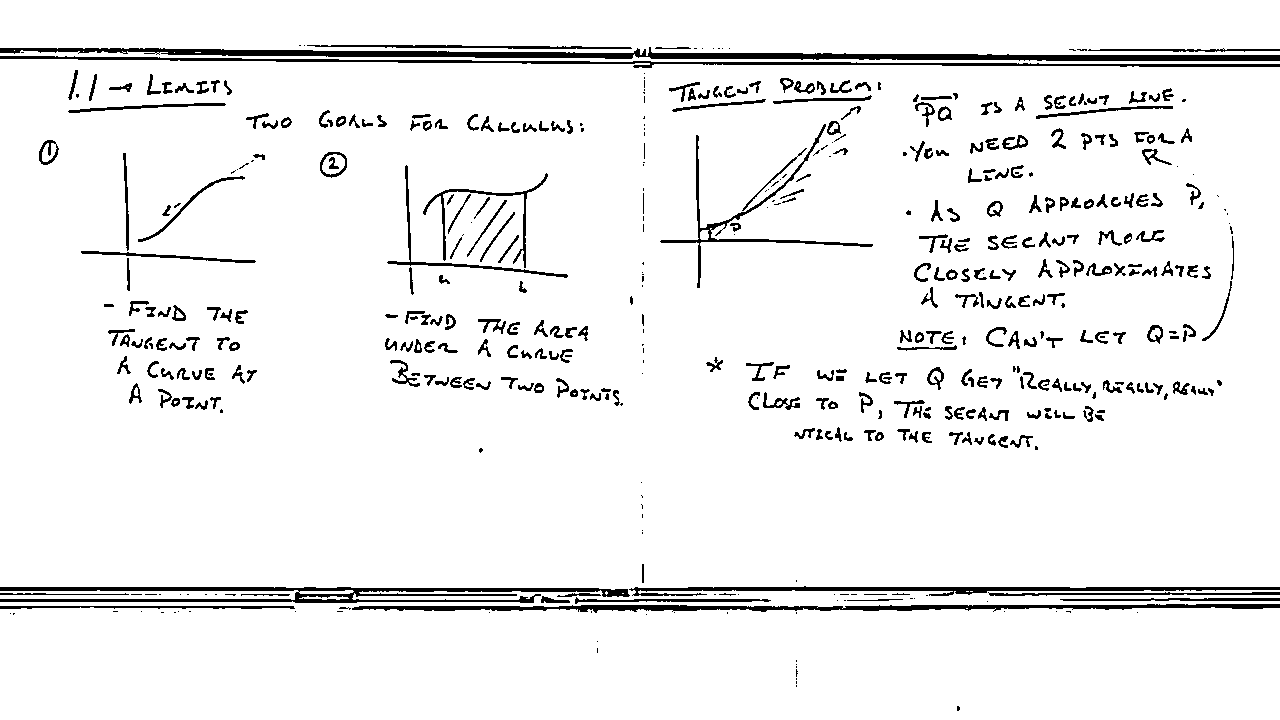 1.1 → LIMITS
TWO GOALS FOR CALCULUS:
①
②
a
b
- FIND THE
TANGENT TO
A CURVE AT
A POINT.
- FIND THE AREA
UNDER A CURVE
BETWEEN TWO POINTS.
TANGENT PROBLEM:
Q
P
"PQ" IS A SECANT LINE.
• YOU NEED 2 PTS FOR A
LINE.
• AS Q APPROACHES P,
THE SECANT MORE
CLOSELY APPROXIMATES
A TANGENT.
NOTE: CAN'T LET Q=P
* IF WE LET Q GET "REALLY, REALLY, REALLY"
CLOSE TO P, THE SECANT WILL BE
NTICAL TO THE TANGENT.